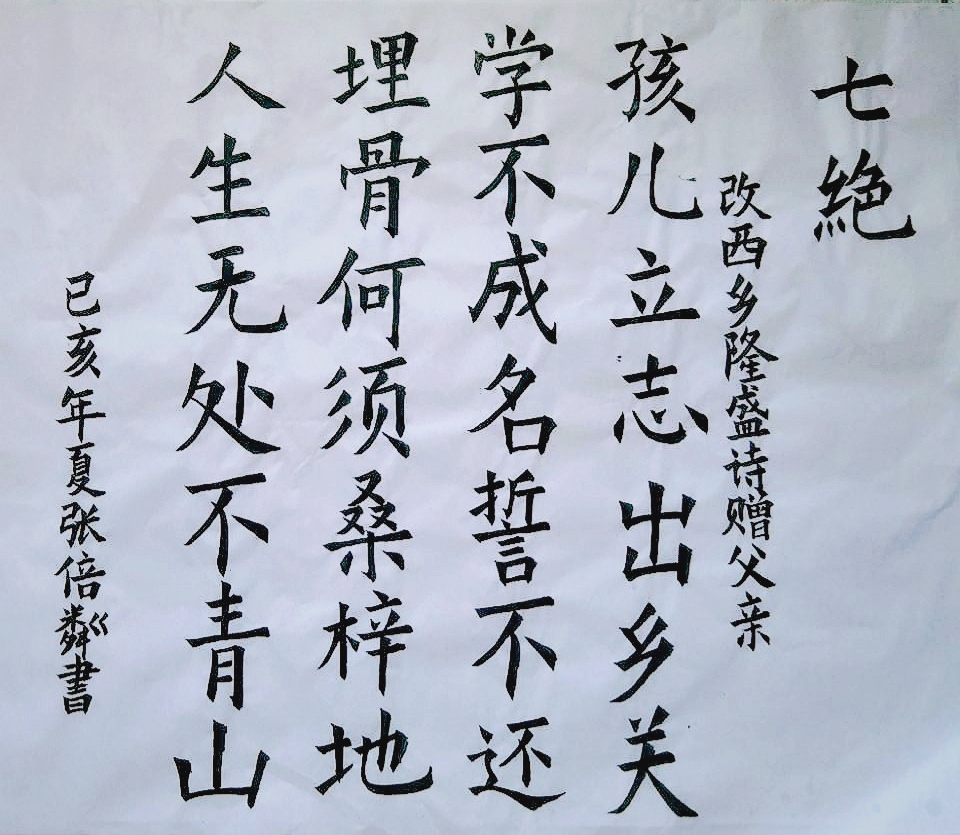 七絶
改西乡隆盛诗赠父亲
孩儿立志出乡关
学不成名誓不还
埋骨何须桑梓地
人生无处不青山
己亥年夏张倍粼書